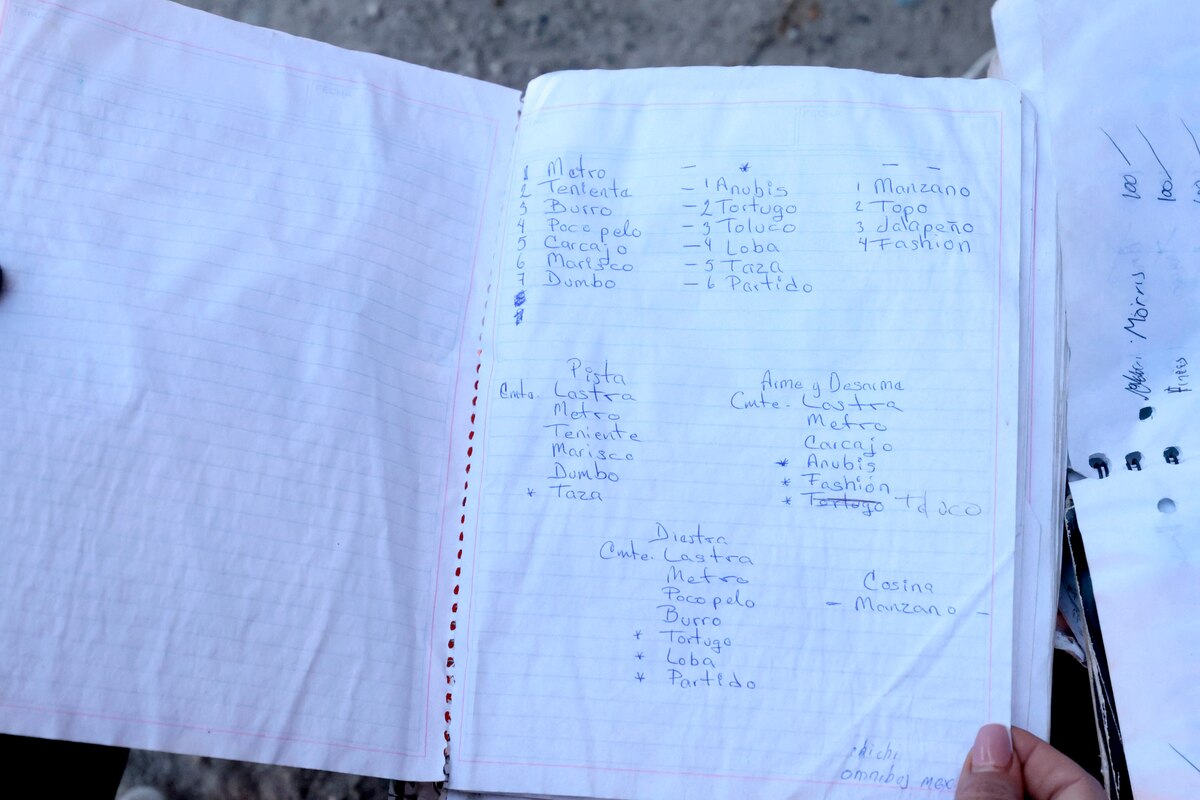 1 Metro
2 Teniente
3 Burro
4 Poco pelo
5 Carcajo
6 Marisco
7 Dumbo
- *
- 1 Anubis
- 2 Tortugo
- 3 Toluco
- 4 Loba
- 5 Taza
- 6 Partido
- -
1 Manzano
2 Topo
3 Jalapeño
4 Fashion
Pista
Cmte. Lastra
Metro
Teniente
Marisco
Dumbo
* Taza
Arme y Desarme
Cmte. Lastra
Metro
Carcajo
* Anubis
* Fashión
* Tortugo Toluco
Diestra
Cmte. Lastra
Metro
Poco pelo
Burro
* Tortugo
* Loba
* Partido
Cosina
- Manzano -
omnibus mex
100
100
Morris